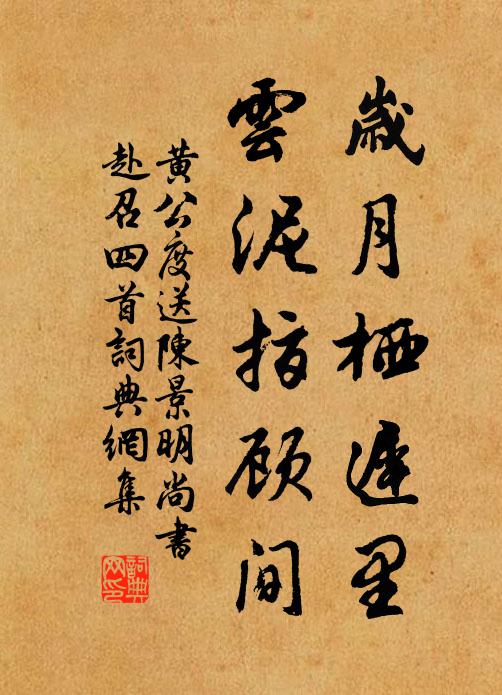 歲月栖遲里
雲泥指顧間
黄公度送陳景明尚書
赴召四首詞典網集
詞典网印